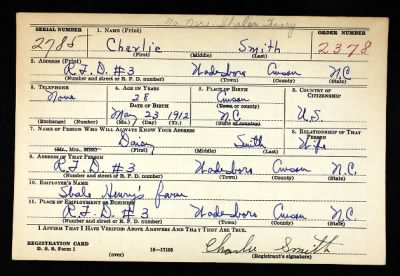 SERIAL NUMBER 1. NAME (Print) ORDER NUMBER
2785 Charlie Smith 2378
(First) (Middle) (Last)
2. ADDRESS (Print)
R.F.D. #3 Wadesboro Anson N.C.
(Number and street or R. F. D. number) (Town) (County) (State)
3. TELEPHONE 4. AGE IN YEARS 5. PLACE OF BIRTH 6. COUNTRY OF CITIZENSHIP
None 28 Anson
DATE OF BIRTH (Town or county)
May 23 1912 N.C. U.S.
(Exchange) (Number) (Mo.) (Day) (Yr.) (State or country)
7. NAME OF PERSON WHO WILL ALWAYS KNOW YOUR ADDRESS 8. RELATIONSHIP OF THAT PERSON
Daisy Smith Wife
(Mr., Mrs., Miss) (First) (Middle) (Last)
9. ADDRESS OF THAT PERSON
R.F.D. #3 Wadesboro Anson N.C.
(Number and street or R. F. D. number) (Town) (County) (State)
10. EMPLOYER'S NAME
Henry's farm
11. PLACE OF EMPLOYMENT OR BUSINESS
R.F.D. #3 Wadesboro Anson N.C.
(Number and street or R. F. D. number) (Town) (County) (State)
I AFFIRM THAT I HAVE VERIFIED ABOVE ANSWERS AND THAT THEY ARE TRUE.
REGISTRATION CARD
D. S. S. Form 1 16-17105 Charlie Smith
(over) (Registrant's signature)